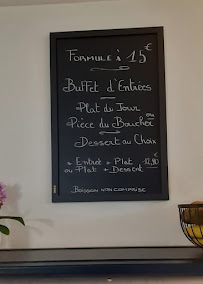 Formule à 15€
Buffet d'Entrées
Plat du Jour
ou
Pièce du Boucher
Dessert au Choix
* Entrée + Plat 12,90
ou Plat + Dessert
Boisson non comprise